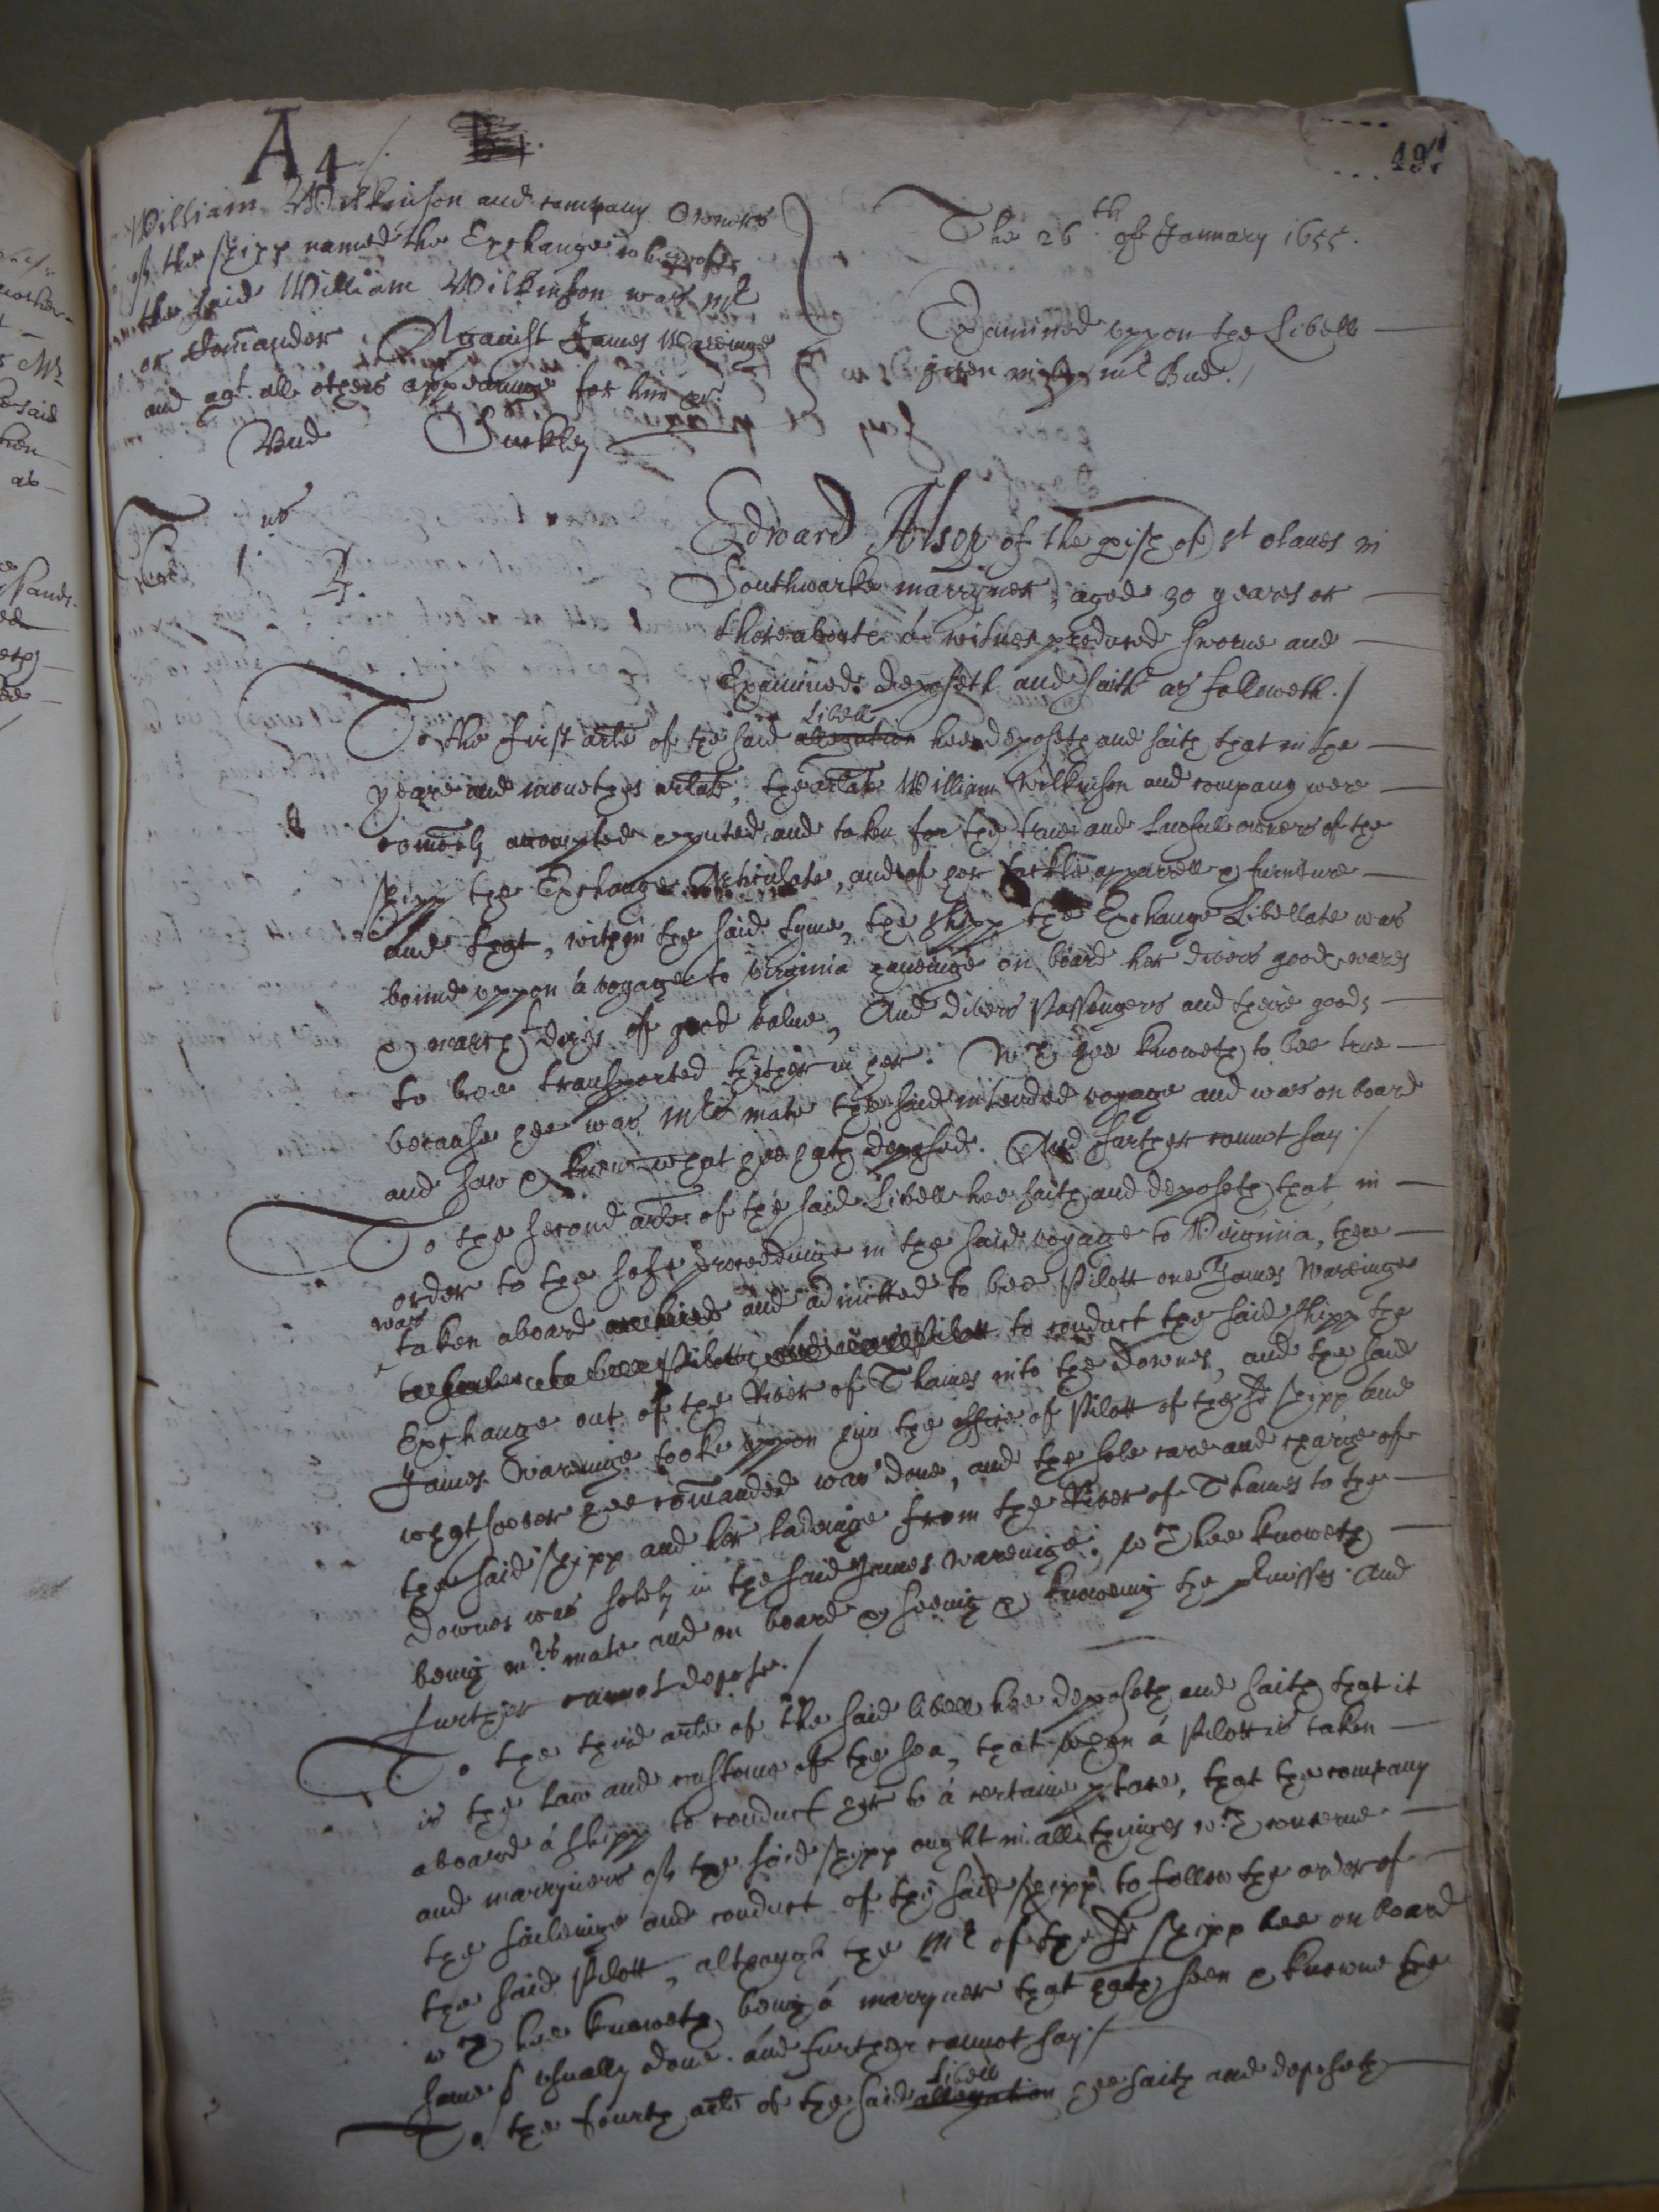 A4
491
William Wilkinson and company Owners
of the shipp named the Exchange whereof
the said William Wilkinson was Mr
or Comander Against James Wareinge
and agt. all others appearing for him &c.
Bud Suckley
The 26th of January 1655.
Examined uppon the Libell
given in by mr Bud./
us
1.
Edward Alsop of the pish of st olaves in
Southwarke marryner, aged 30 yeares or
thereaboute á witnes produced sworne and
Examined deposeth and saith as followeth./
To the first arle of the said allegation Libell hee deposeth and saith that in the
yeare and monethes arlate, the arlate William Wilkinson and company were
comonly accompted reputed and taken for the true and Lawfull owners of the
shipp the Exchange Articulate, and of her tackle apparrell & furniture
and that, within the said tyme, the shipp the Exchange Libellate was
bound uppon á voyage to Virginia haveinge on board her divers goods wares
& marchdizes of good value, And divers Passengers and theire goods
to bee transported thither in her. Wch hee knoweth to bee true
because hee was Mrs mate the said intended voyage and was on board
and saw & knew what hee hath deposed. And further cannot say./
To the second arle of the said Libell hee saith and deposeth that, in
order to the safe proceedinge in the said voyage to Virginia, there
was
taken aboard and admitted to bee Pilott one James Wareinge
to conduct the said shipp the
Exchange out of the River of Thames into the Downes, and the said
James Wareinge tooke uppon him the office of Pilott of the sd shipp and
whatsoever hee comanded was done, and the sole care and charge of
the said shipp and her ladeinge from the River of Thames to the
Downes was solely in the said James Wareinge; wch hee knoweth
being mrs mate and on board & seeing & knoweing the pmisses. And
further cannot depose./
To the third arle of the said libell hee deposeth and saith that it
is the Law and custome of the sea, that when á Pilott is taken
aboard á shipp to conduct her to á certaine place, that the company
and marryners of the said shipp ought in all thinges wch concerne
the saileinge and conduct of the said shipp to follow the order of
the said Pilott, although the Mr of the sd shipp bee on board
wch hee knoweth being á marryner that hath seen & knowne the
same usually done. And further cannot say./
To the fourth arle of the said allegation Libell hee saith and deposeth